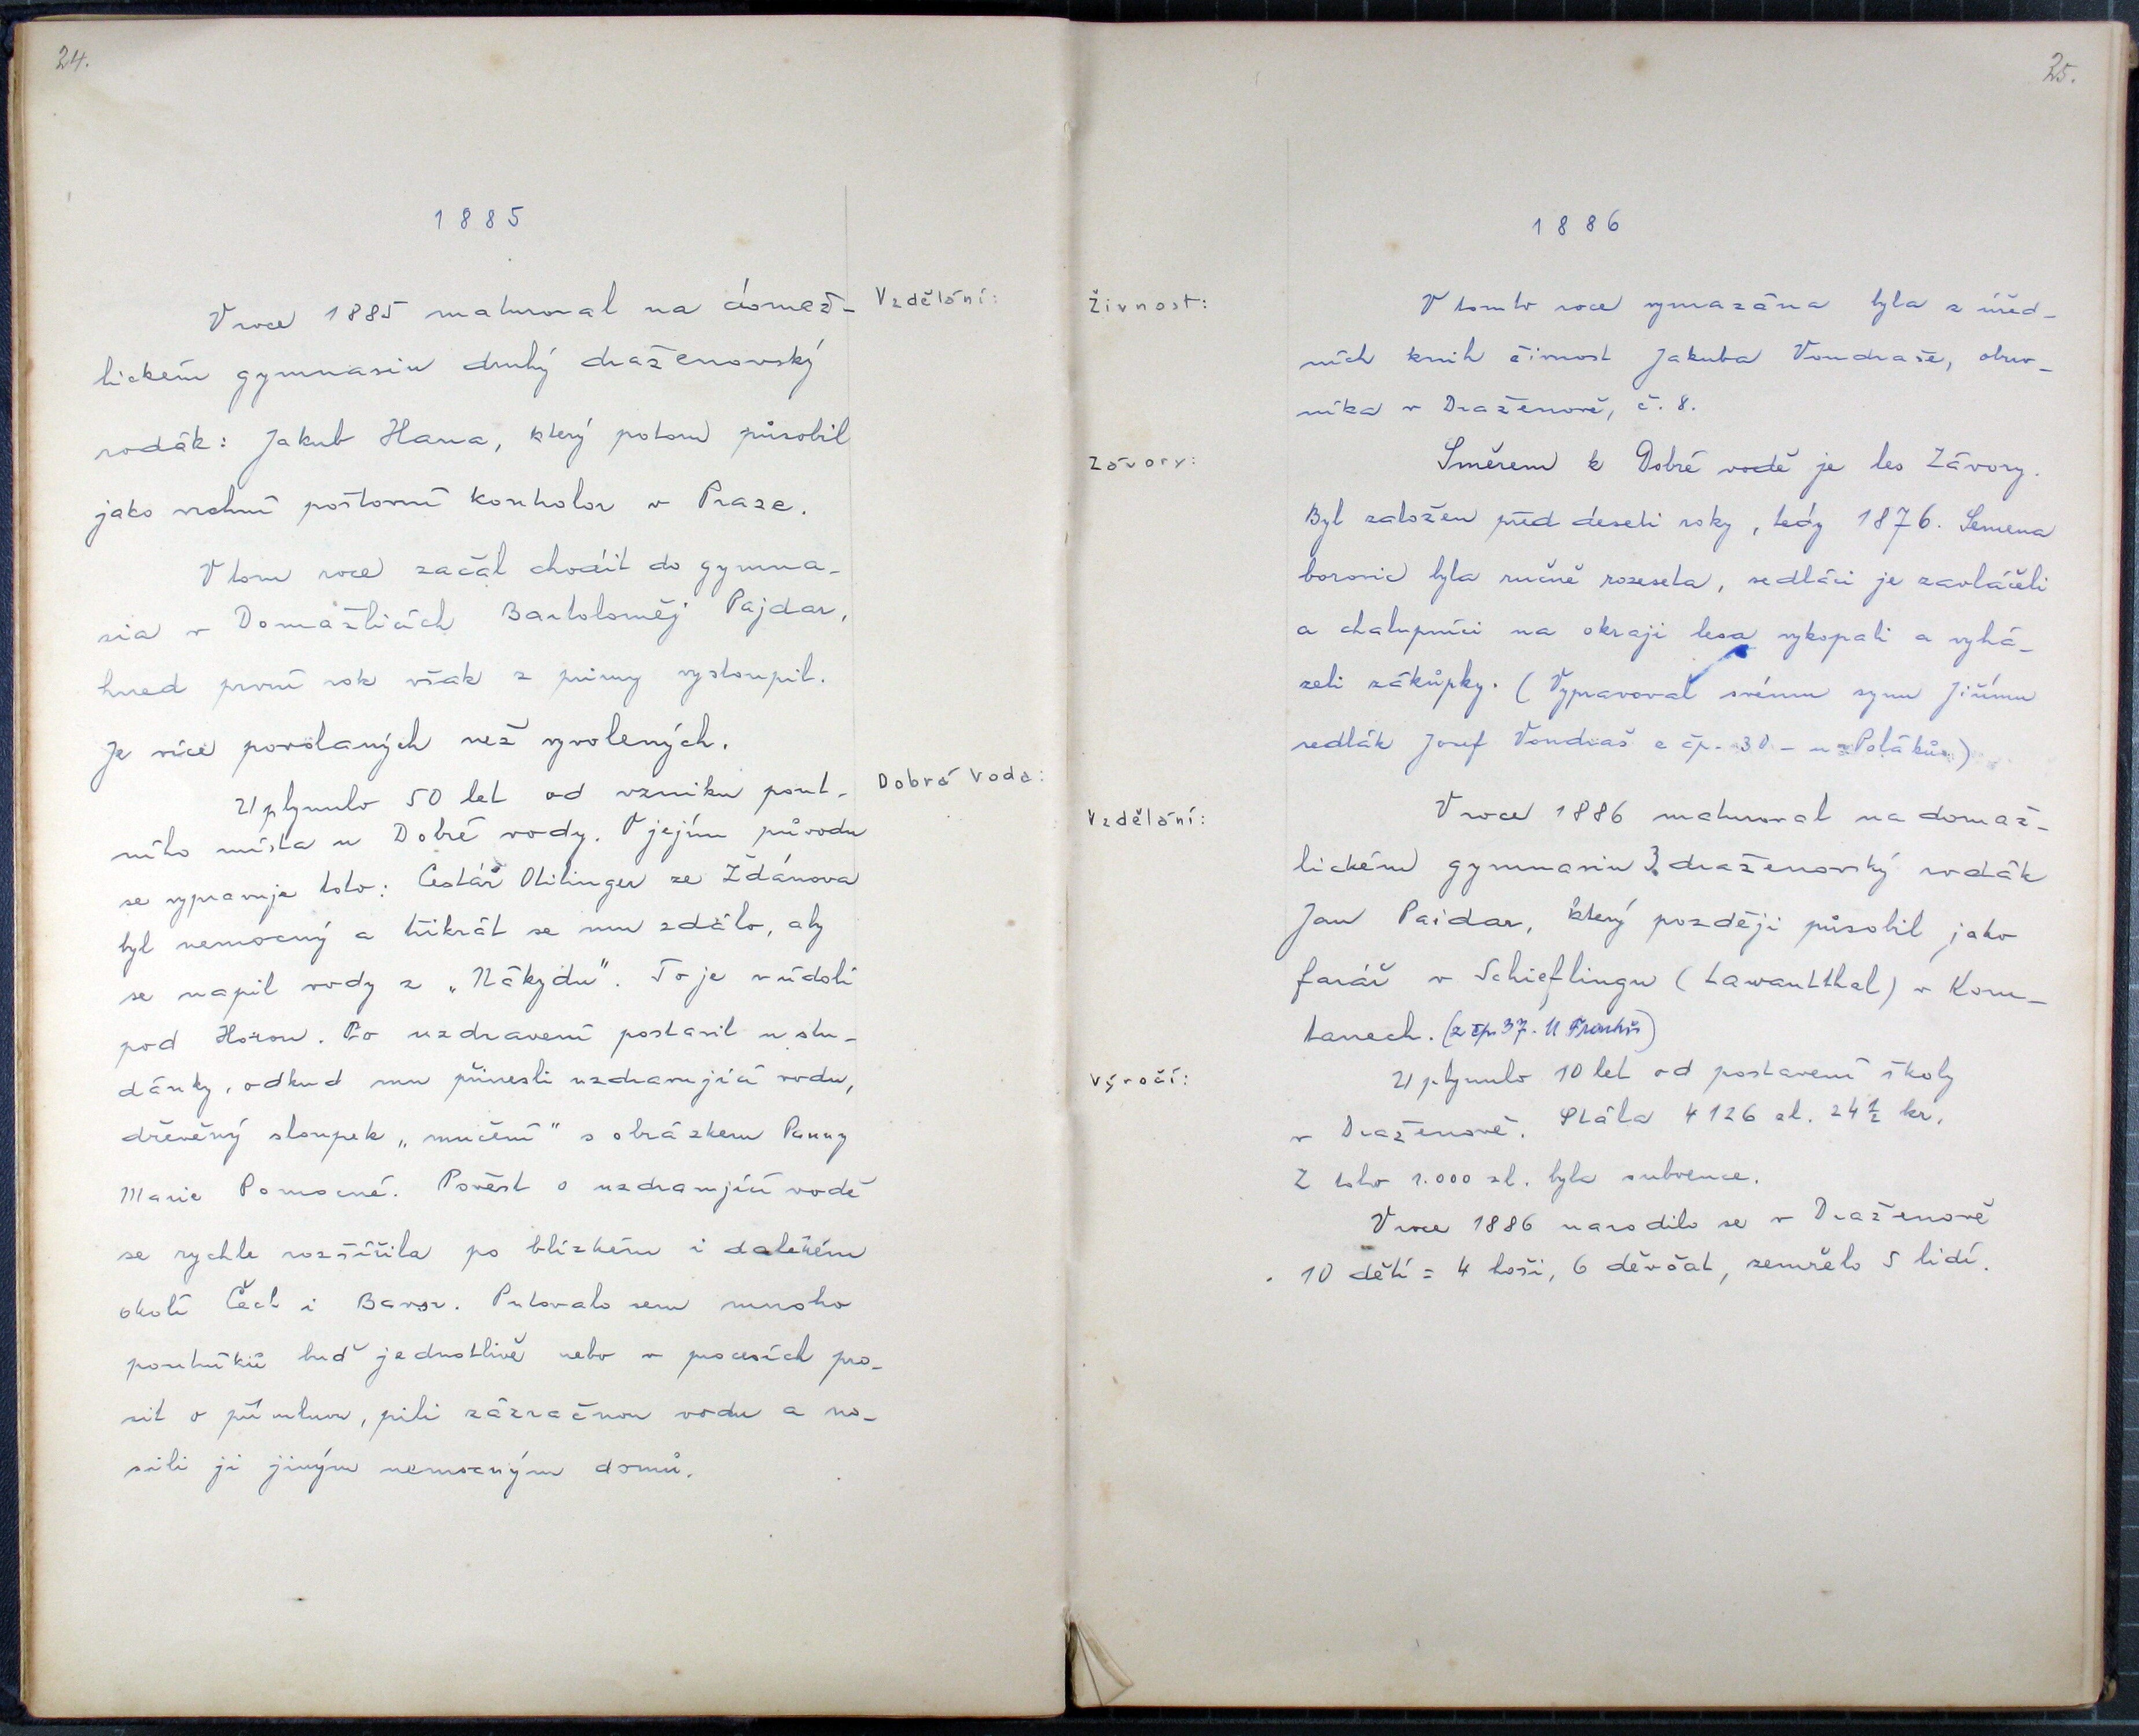 24.
1885
V roce 1885 maturoval na domaž-
Vzdělání:
lickém gymnasiu druhý draženovský
rodák: Jakub Hana, který potom působil
jako vrchní poštovní kontrolor v Praze.
V tom roce začal chodit do gymna-
sia v Domažlicích Bartoloměj Pajdar,
hned první rok však z primy vystoupil.
Je více povolaných než vyvolených.
Uplynulo 50 let od vzniku pout-
Dobrá voda:
ního místa u Dobré vody. V jejím původu
se vypravuje toto: Cestář Otilinger ze Ždánova
byl nemocný a třikrát se mu zdálo, aby
se napil vody z „Nákydu". To je v údolí
pod Horou. Po uzdravení postavil u stu-
dánky, odkud mu přinesli uzdravující vodu,
dřevěný sloupek „mučení" s obrázkem Panny
Marie Pomocné. Pověst o uzdravující vodě
se rychle rozšířila po blízkém i dalekém
okolí Čech i Bavor. Putovalo sem mnoho
poutníků buď jednotlivě nebo v procesích pro-
sit o přímluvu, pili zázračnou vodu a no-
sili ji jiným nemocným domů.
25.
1886
Živnost:
V tomto roce vymazána byla z úřed-
ních knih živnost Jakuba Vondraše, obuv-
níka v Draženově, č. 8.
Závory:
Směrem k Dobré vodě je les Závory.
Byl založen před deseti roky, tedy 1876. Semena
borovic byla ručně rozeseta, sedláci je zavláčeli
a chalupníci na okraji lesa vykopali a vyhá-
zeli zákůpky. (Vypravoval svému synu Jiřímu
sedlák Josef Vondraš z čp. 30 - u Poláků)
Vzdělání:
V roce 1886 maturoval na domaž-
lickém gymnasiu 3. draženovský rodák
Jan Paidar, který později působil jako
farář v Schieflingu (Lawantthal) v Koru-
tanech. (z čp. 37. U )
Výročí:
Uplynulo 10 let od postavení školy
v Draženově. Stála 4126 zl. 24 1/2 kr.
Z toho 1.000 zl. byla subvence.
V roce 1886 narodilo se v Draženově
10 dětí = 4 hoši, 6 děvčat, zemřelo 5 lidí.